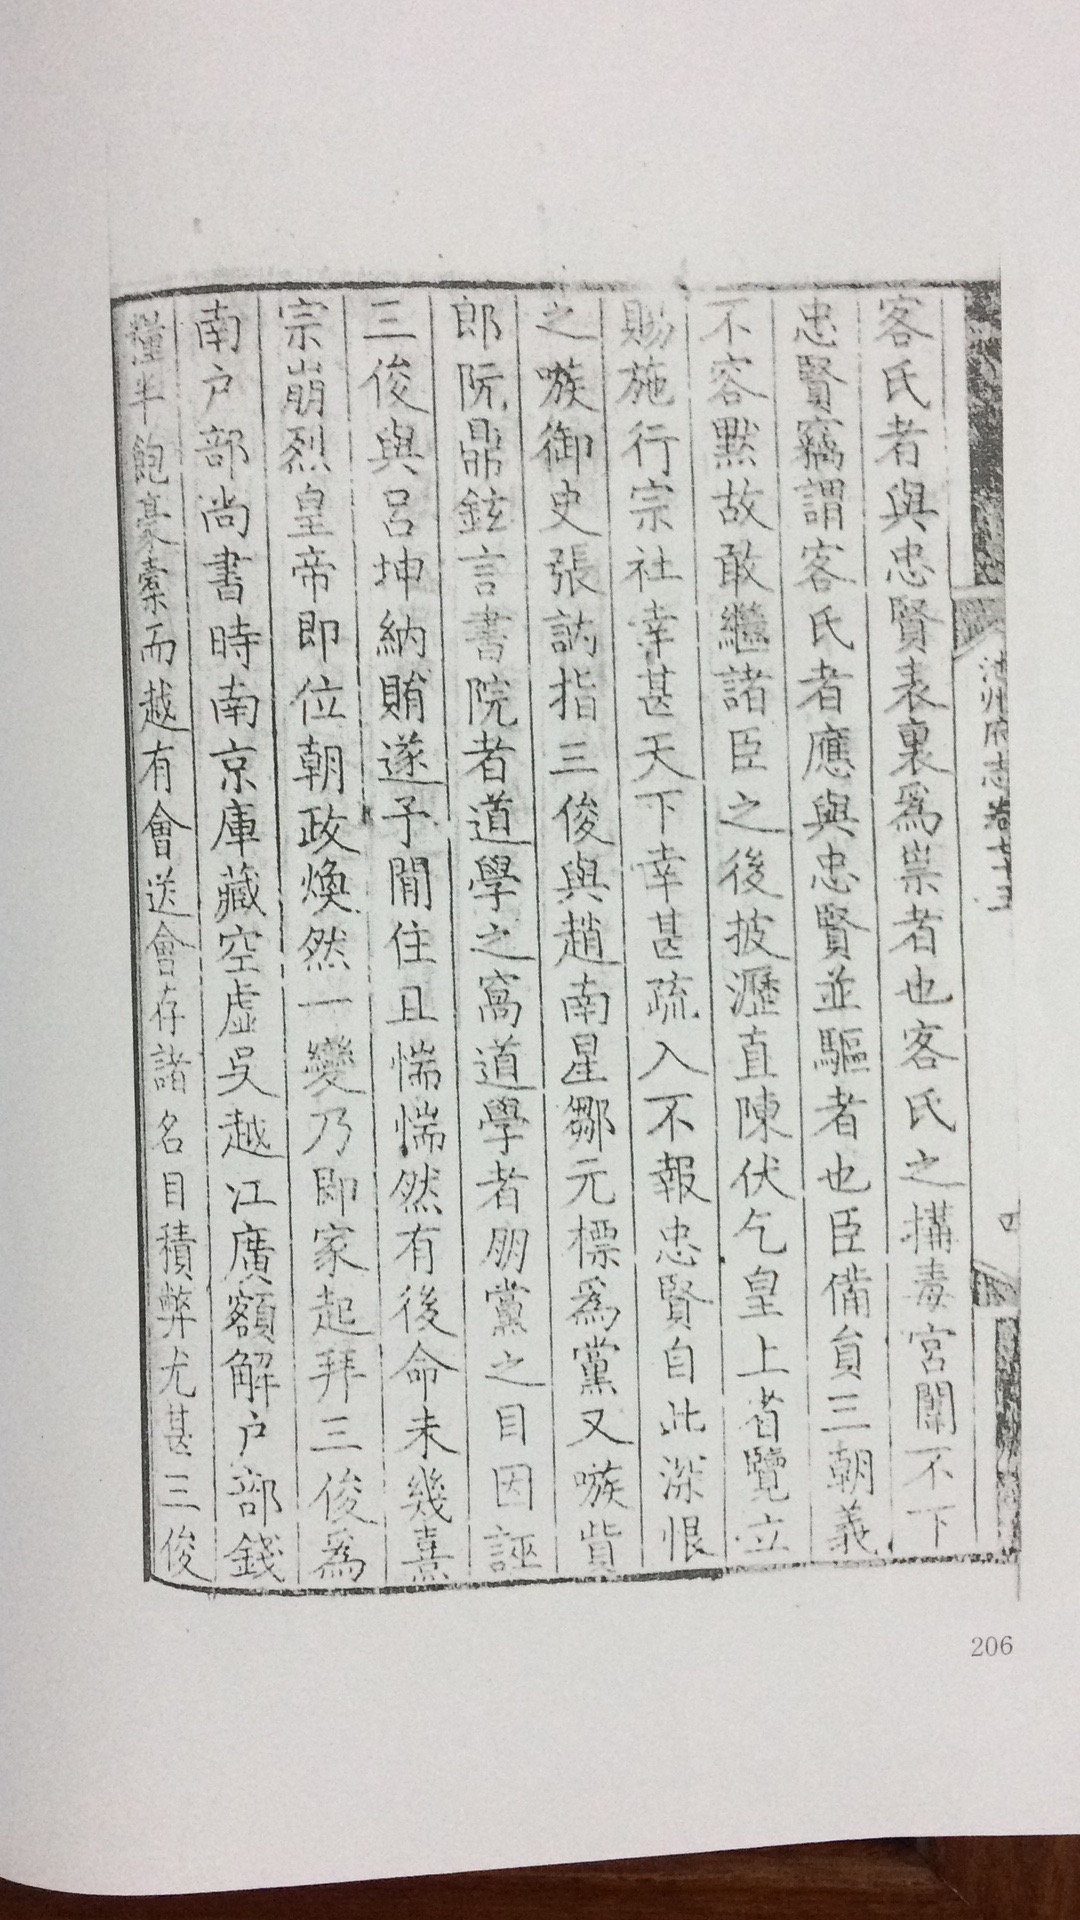 府志卷十五
四
客氏者與忠賢表裏爲祟者也客氏之搆毒宮闈不下
忠賢竊謂客氏者應與忠賢並驅者也臣備員三朝義
不容默故敢繼諸臣之後披瀝直陳伏乞皇上省覽立
賜施行宗社幸甚天下幸甚疏入不報忠賢自此深恨
之嗾御史張訥指三俊與趙南星鄒元標爲黨又嗾貲
郎阮鼎鉉言書院者道學之窩道學者朋黨之目因誣
三俊與呂坤納賄遂予閒住且惴惴然有後命未幾熹
宗崩烈皇帝即位朝政煥然一變乃即家起拜三俊爲
南户部尚書時南京庫藏空虛吳越江廣額解户部錢
糧半飽豪橐而越有會送會存諸名目積弊尤甚三俊
206